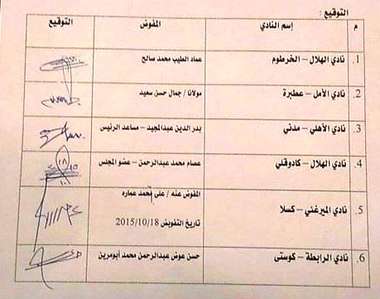 التوقيع :
م إسم النادي المفوض التوقيع
1. نادي الهلال – الخرطوم عماد الطيب محمد صالح
2. نادي الأمل – عطبرة مولانا / جمال حسن سعيد
3. نادي الأهلي – مدني بدر الدين عبدالمجيد – مساعد الرئيس
4. نادي الهلال – كادوقلي عصام محمد عبدالرحمن – عضو المجلس
5. نادي الميرغني – كسلا المفوض عنه / علي محمد عماره
تاريخ التفويض 2015/10/18
6. نادي الرابطة – كوستي حسن عوض عبدالرحمن محمد أبومرين